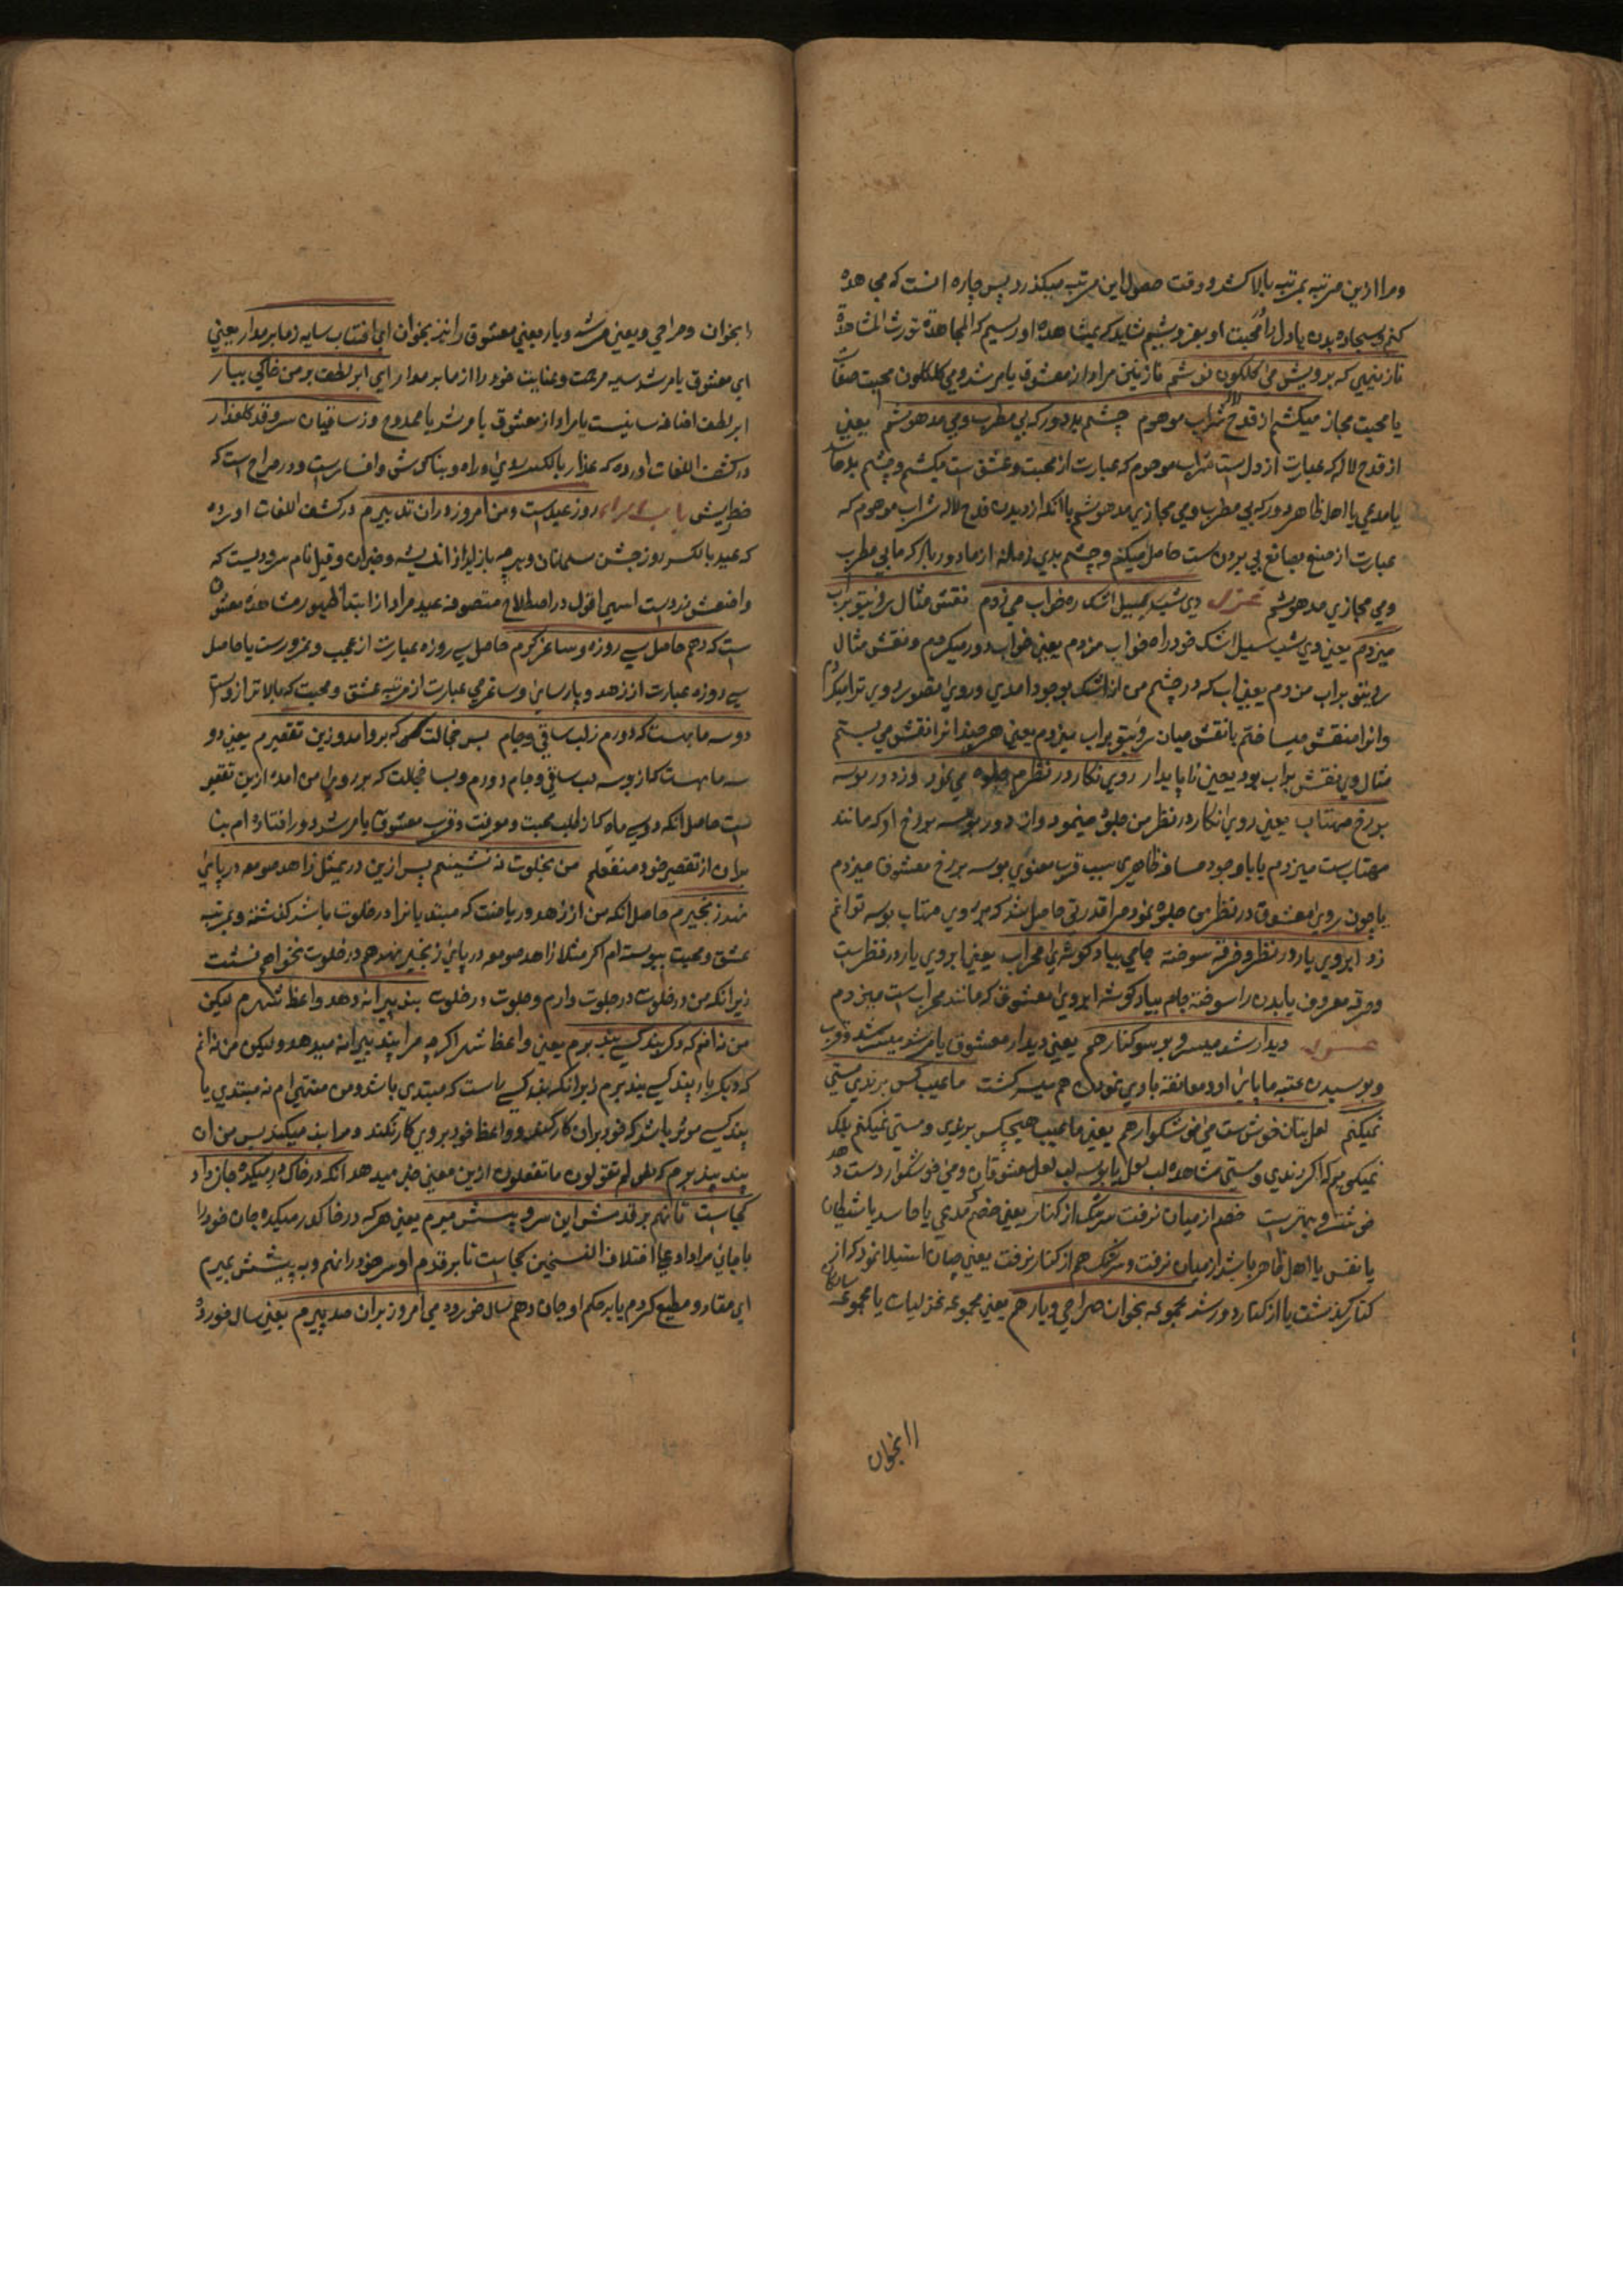 ومرا ازین مرتبه بمرتبه بالا کشد و وقت حصول این مرتبه میکذرد پس چاره انست که مجاهده
کنم وسجاده بدن یا دل را محبت او بفروشیم شاید که بمشاهده او رسیم که المجاهدة تورث المشاهدة
نازنینی که برویش می کلکون نوشم نازنین مراد از معشوق یا مرشد و می کلکلون محبت صفات
یا محبت مجاز میکشم از قدح لاله شراب موهوم چشم بد دور که بی مطرب و می مدهوشم یعنی
از قدح لاله که عبارت از دل است شراب موهوم که عبارت از محبت وعشق است میکشم وچشم بد
یا مدعی یا اهل ظاهر دور که بی مطرب ومی مجازی مدهوشم یا انکه از دیدن قدح لاله شراب موهوم که
عبارت از صنع بصانع پی بردن ست حاصل میکنم وچشم بدی زمانه از ما دور باد که ما بی مطرب
ومی مجازی مدهوشم غزل دی شب بسیل اشک ره خواب می زدم نقش مثال روی تو بر اب
میزدم یعنی دی شب بسیل اشک خود راه خواب مزدم یعنی خواب دور میکردم ونقش مثال
روی تو بر اب مزدم یعنی اب که در چشم من از اشک بوجود امدی وروی مقصود روی ترا میکردم
وانرا منقش میساختم یا نقش میان روی تو بر اب میزدم یعنی هر چند انرا نقش می بستم
مثال وی نقش بر اب بود یعنی ناپایدار روی نکار در نظرم جلوه می نمود وز دور بوسه
بر رخ مهتاب یعنی روی نکار در نظر من جلوه مینمود واز دور بوسه بر رخ او که مانند
مهتاب ست میزدم یا باوجود مسافه ظاهری سبب قرب معنوی بوسه بر رخ معشوق میزدم
یا چون روی معشوق در نظر من جلوه نمود مرا قدرتی حاصل شد که بر روی مهتاب بوسه توانم
زد ابروی یار در نظر وخرقه سوخته جامی بیاد کوشه محراب یعنی ابروی یار در نظر ست
وخرقه معروف یا بدن را سوخته جام بیاد کوشه ابروی معشوق که مانند محراب ست میزدم
غزل دیدار شد میسر وبوس وکنار هم یعنی دیدار معشوق یا مرشد میسر شد وقرب
وبوسیدن عتبه ما پای او ومعانقه با وی نمودن هم میسر کشت ما عیب کس برندی ومستی
نمیکنم لعل بتان خوش ست می خوشکوار هم یعنی ما عیب هیچکس برندی ومستی نمیکنم بلکه
نمیکویم که اکر رندی ومستی مشاهده لب لعل یا بوسه لب لعل معشوقان ومی خوشکوار دست دهد
خوشتر وبهتر ست خصم از میان نرفت سرشک از کنار یعنی خصم مدعی یا حاسد یا شیطان
یا نفس یا اهل ظاهر باشد از میان نرفت وسرشک هم از کنار نرفت یعنی چنان استیلا نمود که از
کنار کذشت یا از کناره دور شد مجموعه بخوان صراحی ویار هم یعنی مجموعه غزلیات یا مجموعه
را بخوان
را بخوان وصراحی ویعنی مرشد ویار یعنی معشوق را نیز بخوان ای افتاب سایه ز ما بر مدار یعنی
ای معشوق یا مرشد سایه مرحمت وعنایت خود را از ما بر مدار ای ابر لطف بر من خاکی ببار
ابر لطف اضافه بیانیست یا مراد از معشوق یا مرشد یا ممدوح وز ساقیان سرو قد کلعذار
در کشف اللغات اورده که عذار بالکسر روی وراه وبناکوش وافسارست ودر صراح است که
خط ریش روز عید است ومن امروز دران تدبیرم در کشف اللغات اورده
که عید بالکسر روز جشن مسلمانان وهر چه بازاید از اندیشه وجز ان وقیل نام سرودیست که
واضعش زردست اسهی اقول در اصطلاح متصوفه عید مراد از ابتداء ظهور مشاهده معشوق
است که دهم حاصل سی روزه وساغر کیرم حاصل سی روزه عبارت از عجب وغرورست یا حاصل
سی روزه عبارت از زهد وپارسای وساغر می عبارت از مرتبه عشق ومحبت که بالاتر ازوست
دو سه ماهست که دورم ز لب ساقی وجام بس خجالت که برو امد وزین تقصیرم یعنی دو
سه ماهست که از بوسه لب ساقی وجام دورم وبسا خجلت که بر روی من امده ازین تقصیر
است حاصل انکه دو سه ماه که از طلب محبت ومعرفت وقرب معشوق یا مرشد دور افتاده ام بنا
بران از تقصیر خود منفعلم من بخلوت نه نشینم پس ازین در بمثل زاهد صومعه در پای
نهد زنجیرم حاصل انکه من از زهد وریاضت که مبتدیانرا در خلوت باشد کذشته وبمرتبه
عشق ومحبت پیوسته ام اکر مثلا زاهد صومعه در پای زنجیر نهد هم در خلوت نخواهم نشست
زیرا که من در خلوت در جلوت دارم وجلوت در خلوت پند پیرانه دهد واعظ شهرم لیکن
من نه انم که دکر پند کسی بپذیرم یعنی واعظ شهر اکرچه مرا پند پیرانه میدهد ولیکن من نه انم
که دیکر بار پند کسی بپذیرم زیرا که پند کسی راست که مبتدی باشد ومن منتهی ام نه مبتدی یا
پند کسی موثر باشد که خود بران کار کند وواعظ خود بر وی کار نکند ومرا پند میکند پس من ان
پند بپذیرم که لم تقولون ما تفعلون ازین معنی خبر میدهد انکه در خاک در میکده جان داد
کجاست تا نهم بر قدمش این سر وپیشش میرم یعنی هر که در خاک در میکده جان خود را
بجای مراد داد علی اختلاف النسختین کجاست تا بر قدم او سر خود را نهم وپیشش بمیرم
ای منقاد ومطیع کردم یا بر حکم او جان دهم سال خورده می امروز بران صد پیرم یعنی سال خورده